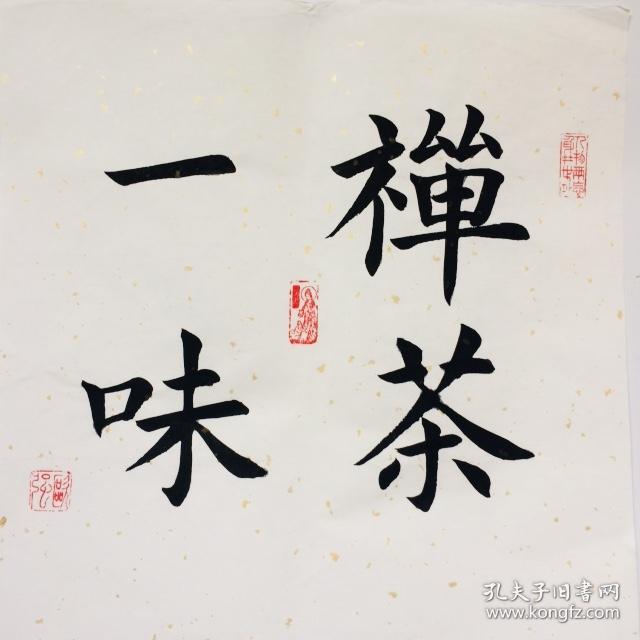 禪茶
一味
孔夫子旧书网
www.kongfz.com